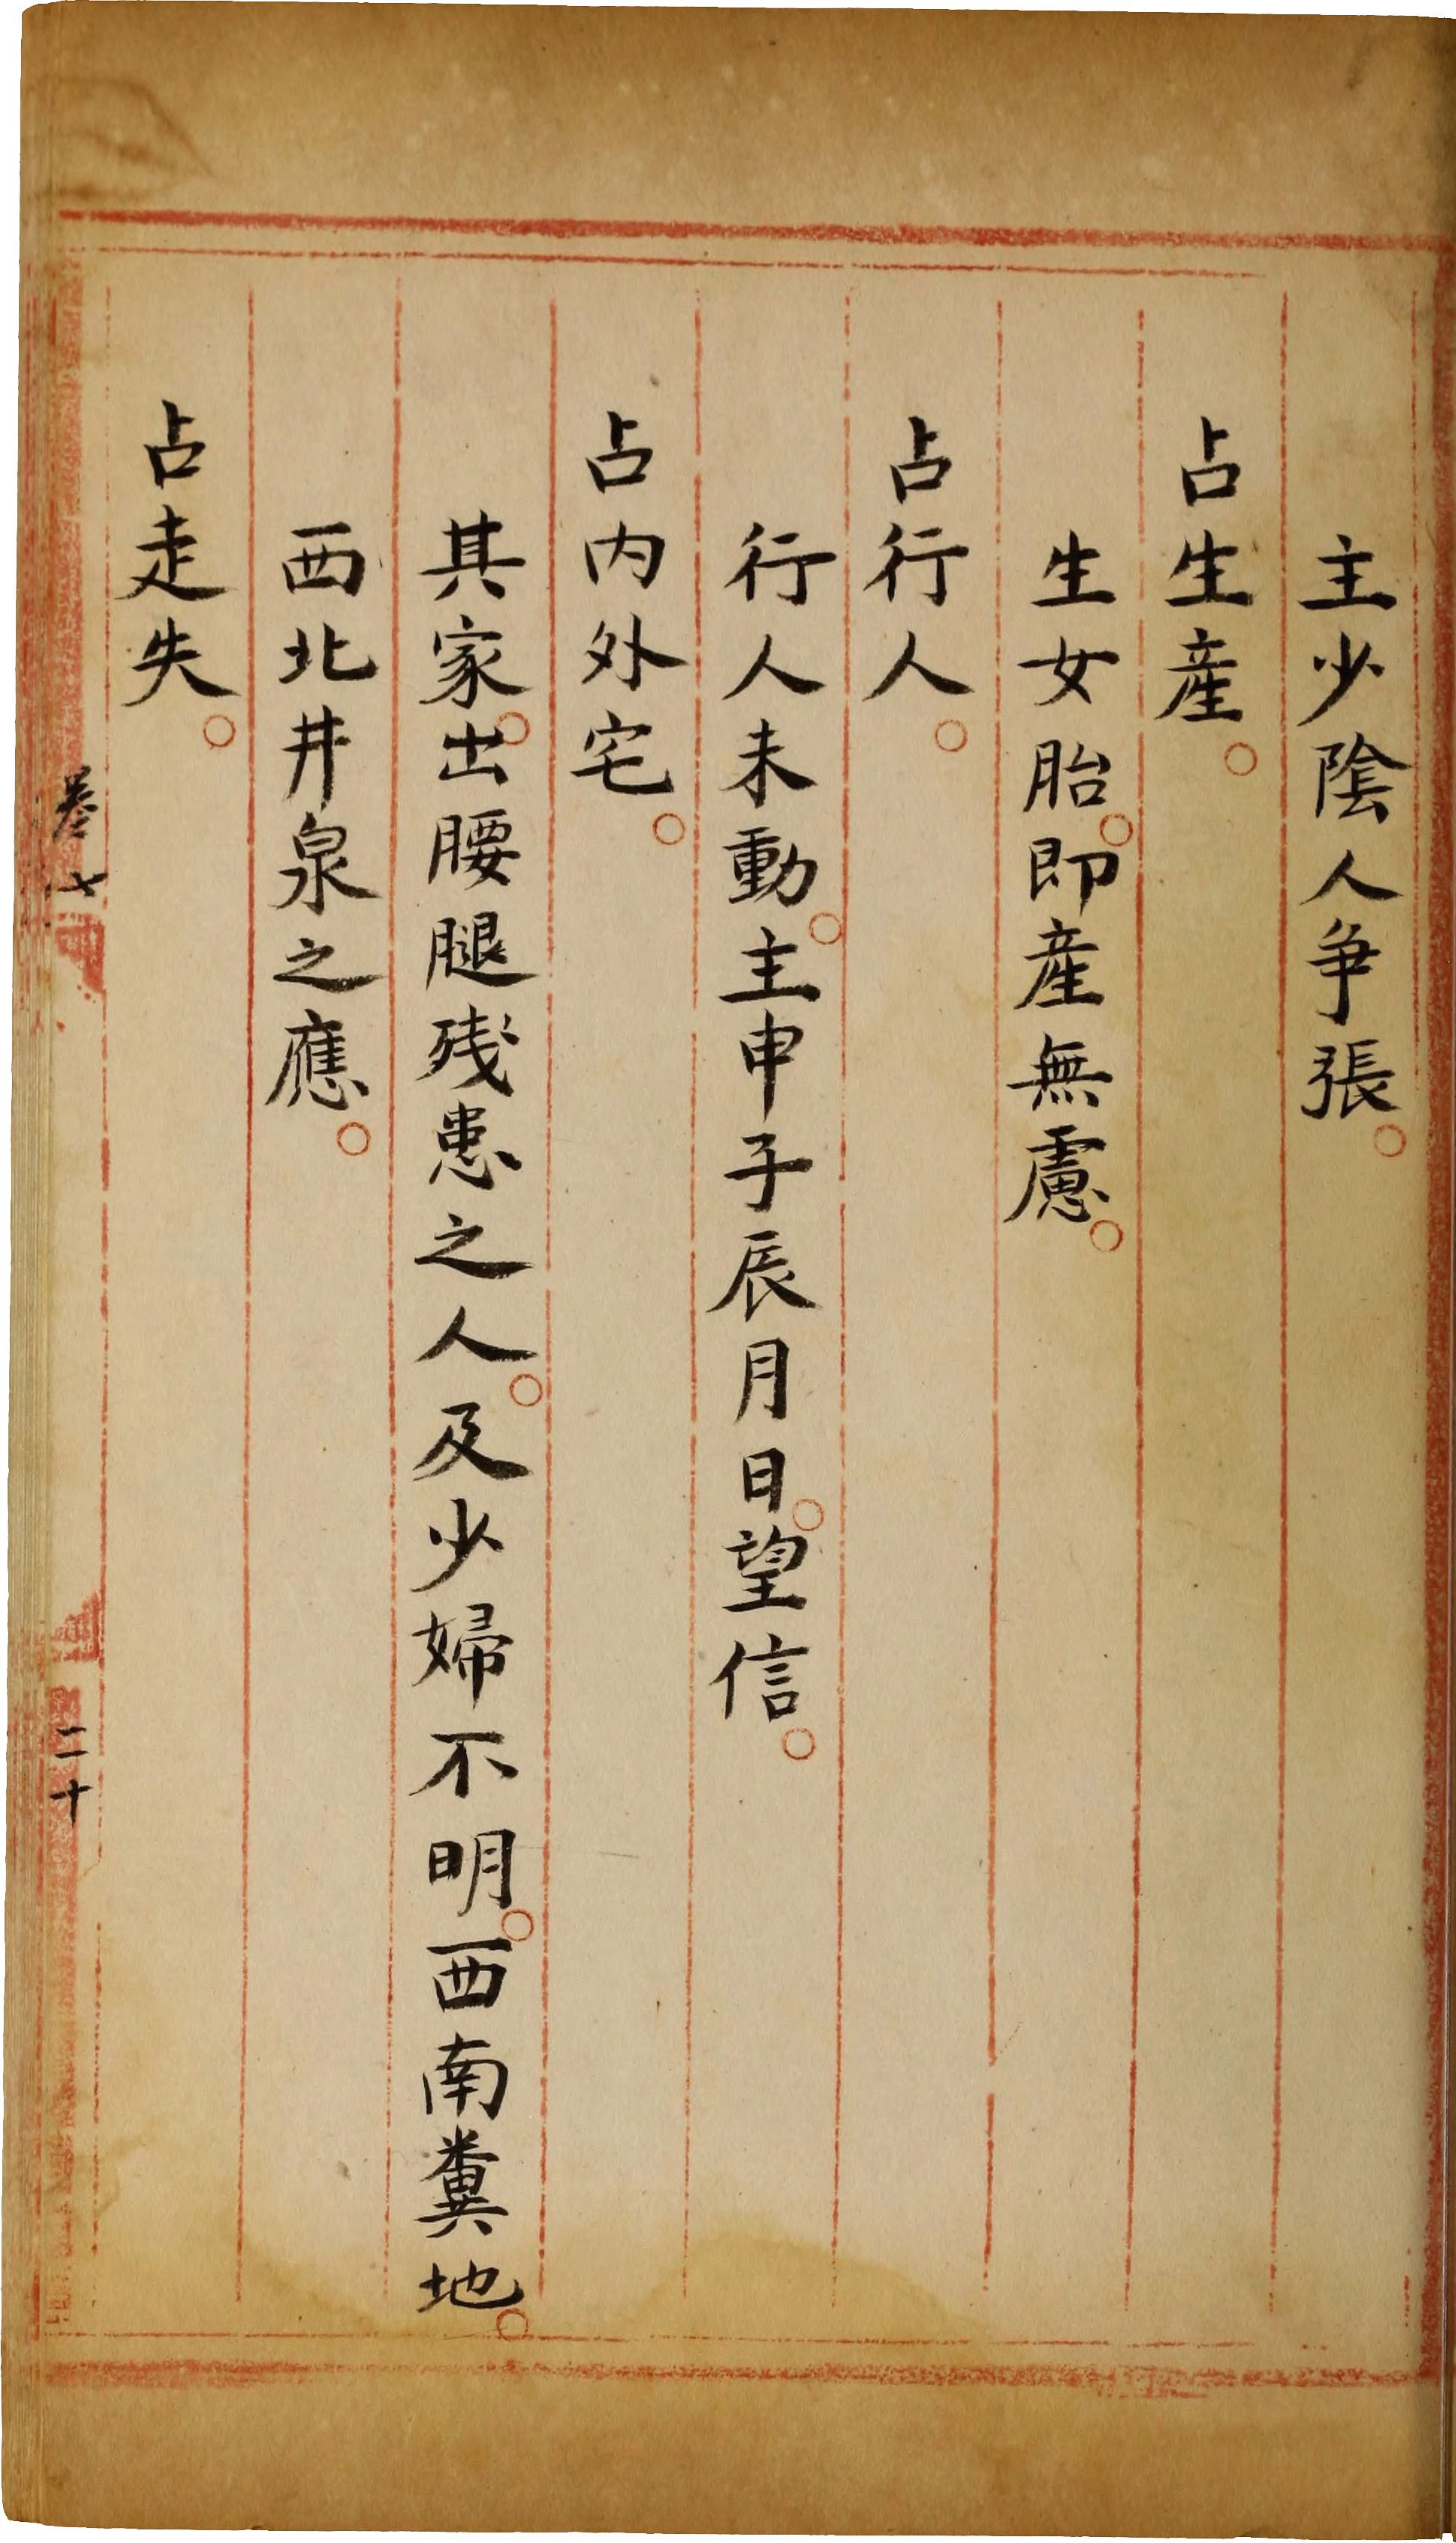 主少陰人争張。
占生産。
生女胎。即産無慮。
占行人。
行人未動。主申子辰月日。望信。
占内外宅。
其家。出腰腿残患之人。及少婦不明。西南糞地。
西北井泉之應。
占走失。
卷七
二十